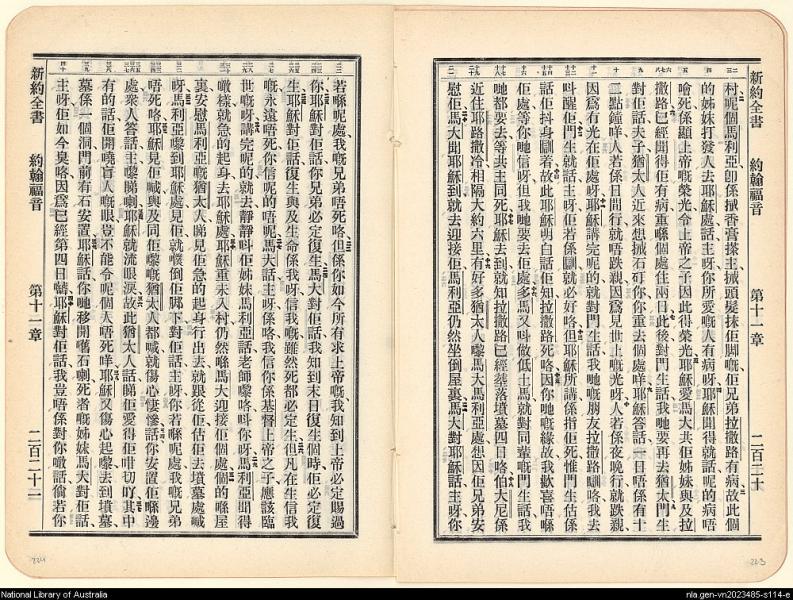 新約全書 約翰福音 第十一章 二百二十
村呢個馬利亞卽係搣香膏搽主搣頭髮抹佢脚嘅佢兄弟拉撒路有病故此個
的姊妹打發人去耶穌處話主呀你所愛嘅人有病呀耶穌聞得就話呢的病唔
噲死係顯上帝嘅榮光令上帝之子因此得榮光耶穌愛馬大共佢姊妹與及拉
撒路已經聞得佢有病重喺個處住兩日此後對門生話我哋要再去猶太門生
對佢話夫子猶太人近來想搣石矴你你重去個處咩耶穌答話一日唔係有十
二點鐘咩人若係日間行就唔跌親因爲見世上嘅光呀人若係夜晚行就跌親
因爲冇光在佢處呀耶穌講完呢的就對門生話我哋嘅朋友拉撒路瞓咯我去
呌醒佢門生就話主呀佢若係瞓就必好咯但耶穌所講係指佢死惟門生估係
話佢抖身瞓着故此耶穌明白話佢知拉撒路死咯因你哋嘅緣故我歡喜唔喺
佢處等你哋信呀但我哋要去佢處多馬又呌做低土馬就對同輩嘅門生話我
哋都要去等共主同死耶穌去到就知拉撒路已經葬落墳墓四日咯伯大尼係
近住耶路撒冷相隔大約六里有好多猶太人嚟馬大馬利亞處想因佢兄弟安
慰佢馬大聞耶穌到就去迎接佢馬利亞仍然坐倒屋裏馬大對耶穌話主呀你
223
若喺呢處我嘅兄弟唔死咯但係你如今所有求上帝嘅我知到上帝必定賜過
你耶穌對佢話你兄弟必定復生馬大對佢話我知到末日復生個時佢必定復
生耶穌對佢話復生與及生命係我呀信我嘅雖然死都必定生但凡在生信我
嘅永遠唔死你信呢的唔呢馬大話主呀係咯我信你係基督上帝之子應該臨
世嘅呀講完呢的就去靜靜呌佢姊妹馬利亞話老師嚟咯呌你呀馬利亞聞得
噉樣就急的起身去耶穌處耶穌重未入村仍然喺馬大迎接佢個處個的喺屋
裏安慰馬利亞嘅猶太人睇見佢急的起身行出去就跟從佢估佢去墳墓處喊
呀馬利亞嚟到耶穌處見佢就噗倒佢脚下對佢話主呀你若喺呢處我嘅兄弟
唔死咯耶穌見佢喊與及同佢嚟嘅猶太人都喊就傷心悽慘話你安置佢喺邊
處衆人答話主嚟睇喇耶穌就流眼淚故此猶太人話睇佢愛得佢咁切吖其中
有的話佢開曉盲人嘅眼豈不能令呢個人唔死咩耶穌又傷心起嚟去到墳墓
墓係一個洞門前有石安置耶穌話你哋移開嚿石喇死者嘅姊妹馬大對佢話
主呀佢如今臭咯因爲已經第四日嚹耶穌對佢話我豈唔係對你噉話倘若你
新約全書 約翰福音 第十一章 二百二十二
224
National Library of Australia
nla.gen-vn2023485-s114-e